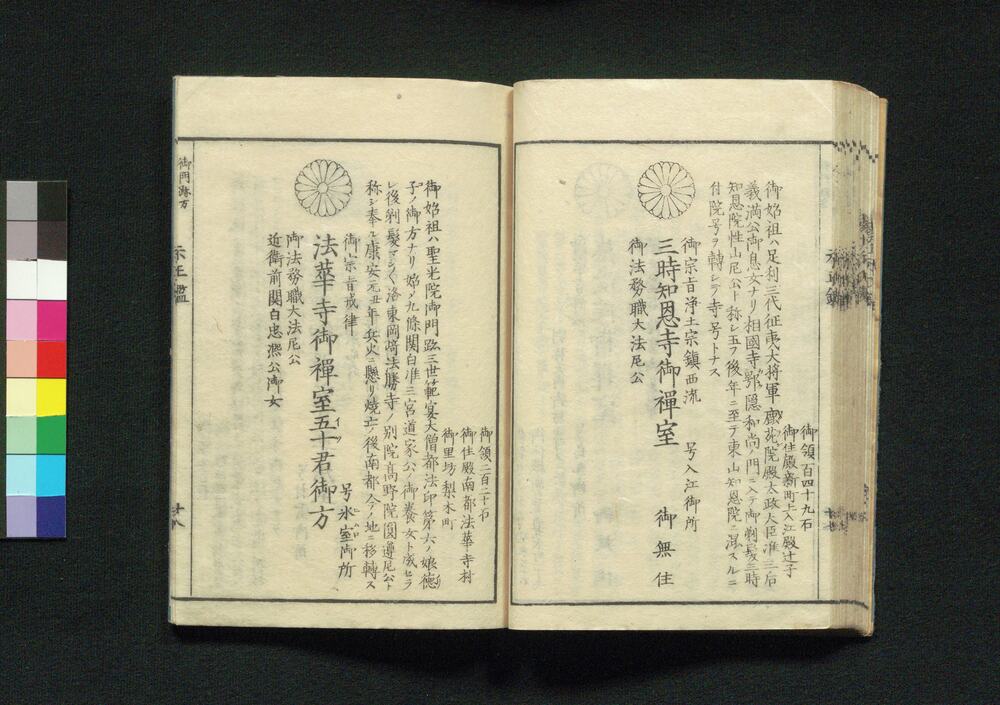 御領百四十九石
御住殿新町上入江殿辻子
御始祖ハ足利三代征夷大将軍鹿苑院殿太政大臣准三后
義満公御息女ナリ相國寺鄂隠和尚ノ門ニ入テ御剃髪三時
知恩院性山尼公ト称シ玉フ後年ニ至テ東山知恩院ニ混スルニ
付院号ヲ轉シテ寺号トナス
御宗旨浄土宗鎮西流 号入江御所
三時知恩寺御禪室 御無住
御法務職大法尼公
御領二百二十石
御住殿南都法華寺村
御里坊梨木町
御始祖ハ聖光院御門跡三世範宴大僧都法印第六ノ娘德
子ノ御方ナリ始メ九條関白准三宮道家公ノ御養女ト成セラ
レ後剃髪マシ〱洛東岡﨑法勝寺ノ別院高野院圓遵尼公ト
称シ奉ル康安元丑年兵火ニ懸リ焼亡ノ後南都今ノ地ニ移轉ス
御宗旨戒律 号氷室御所
法華寺御禪室五十君御方
御法務職大法尼公
近衛前関白忠凞公御女
御門跡方